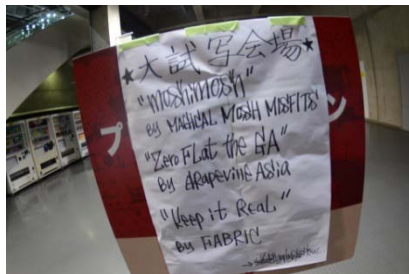 ★大試写会場★
"moshimosh"
By MAGICAL MOSH MISFITS
"Zero FLat the GA"
By GRapevine Asia
"Keep it Real"
by FABRIC
プ
ン